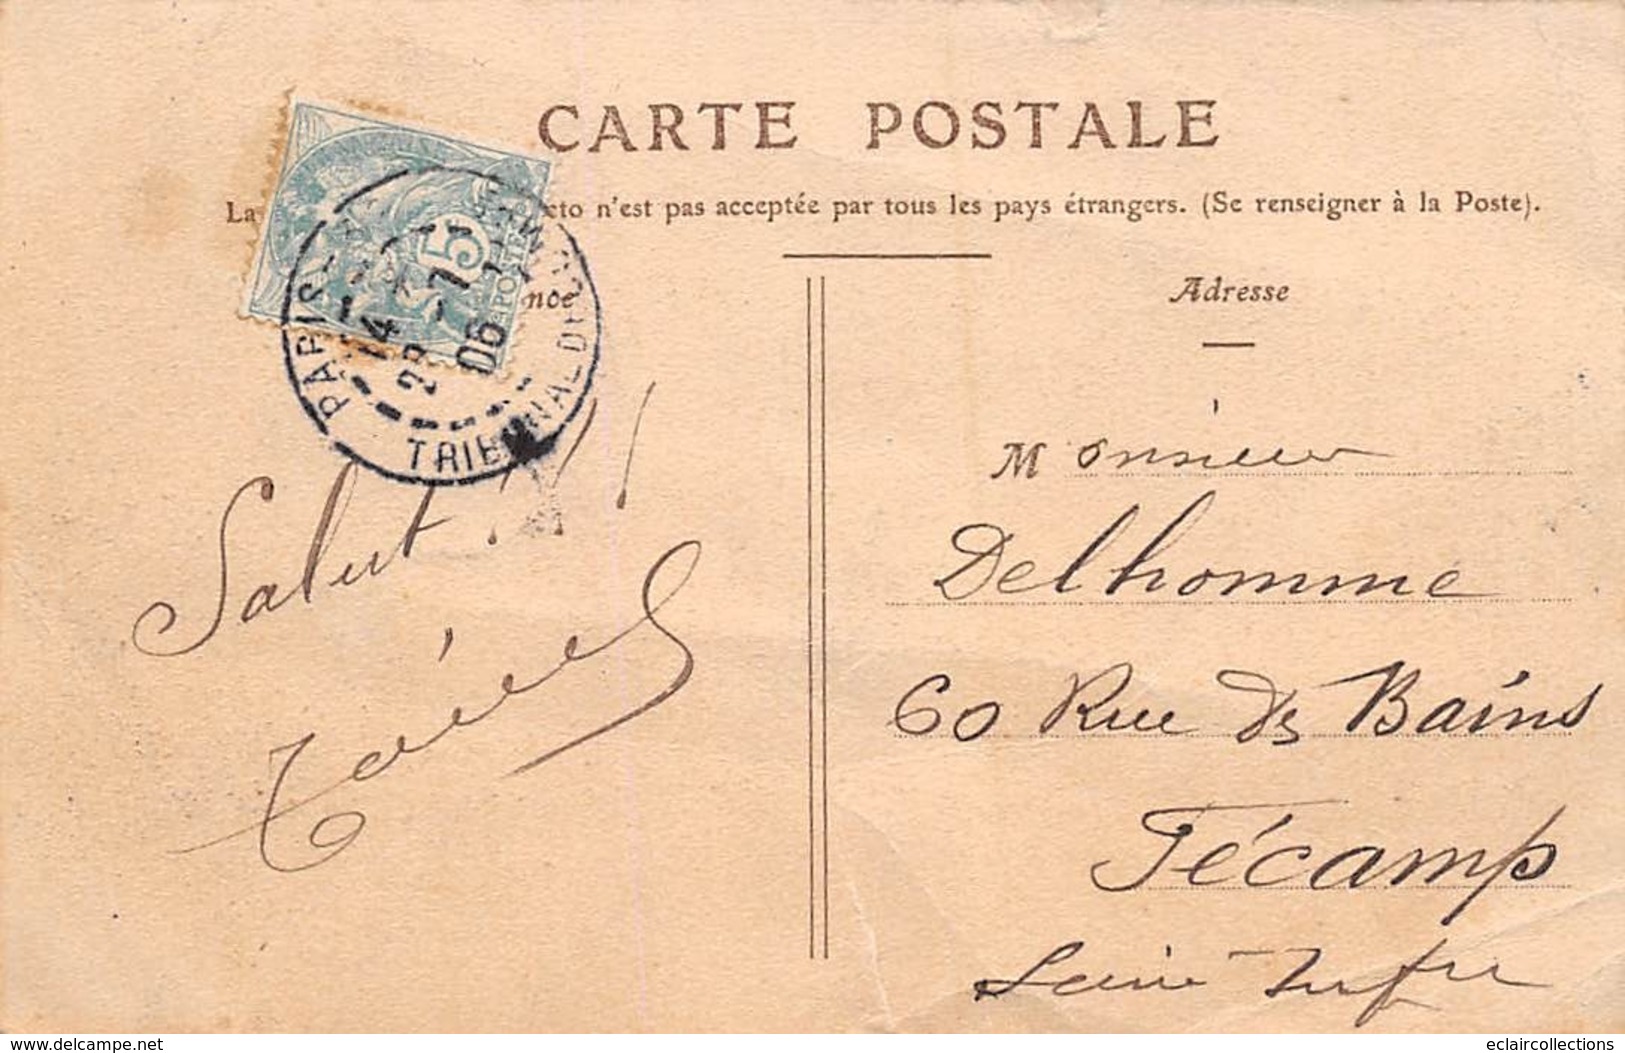 CARTE POSTALE
La cto n'est pas acceptée par tous les pays étrangers. (Se renseigner à la Poste).
nce
Adresse
5
POSTE
PARIS
14
23 -1
06
TRIBUNAL DE COMMERCE
Salut !!!
Monsieur
Delhomme
60 Rue des Bains
Fécamp
Seine Infre
delcampe.net
eclaircollections